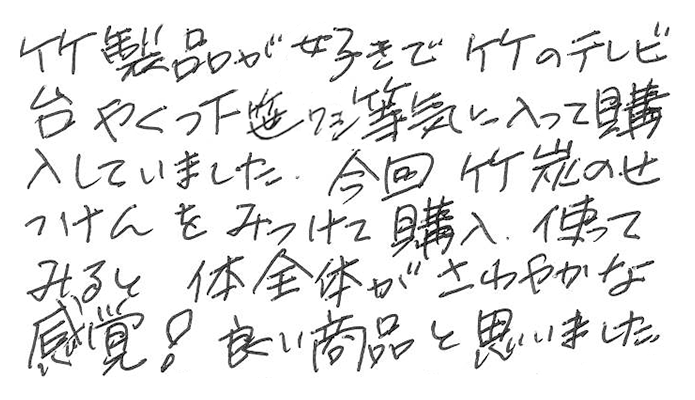 竹製品が好きで竹のテレビ
台やくつ下 等気に入って購
入していました. 今回 竹炭のせ
っけんをみつけて購入. 使って
みると 体全体がさわやかな
感覚! 良い商品と思いました.